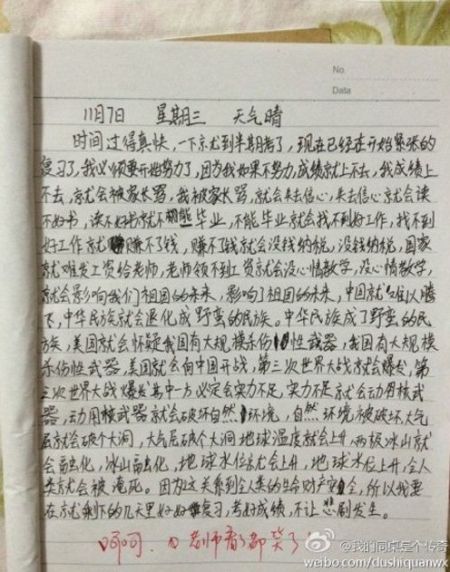 No.
Data
11月7日 星期三 天气晴
时间过得真快,一下就到半期考了,现在已经在开始紧张的
复习了,我必须要开始努力了,因为我如果不努力,成绩就上不去,我成绩上
不去,就会被家长骂,我被家长骂,就会失去信心,失去信心就会读
不好书,读不好书就不能毕业,不能毕业就会找不到好工作,找不到
好工作就赚不了钱,赚不了钱就会没钱纳税,没钱纳税,国家
就难发工资给老师,老师领不到工资就会没心情教学,没心情教学,
就会影响我们祖国的未来,影响了祖国的未来,中国就难以腾
飞,中华民族就会退化成野蛮的民族。中华民族成了野蛮的民
族,美国就会怀疑我国有大规模杀伤性武器,我国有大规模
杀伤性武器,美国就会向中国开战,第三次世界大战就会爆发,第
三次世界大战爆发其中一方必定会实力不足,实力不足就会动用核武
器,动用核武器就会破坏自然环境,自然环境被破坏,大气
层就会破个大洞,大气层破个大洞地球温度就会上升,两极冰山就
会融化,冰山融化,地球水位就会上升,地球水位上升,全人
类就会被淹死。因为这关系到全人类的生命财产安全,所以我要
在就剩下的几天里好好复习,考好成绩,不让悲剧发生。
呵呵、老师看了都笑了
@我的同桌是个传奇
weibo.com/dushiquanwx